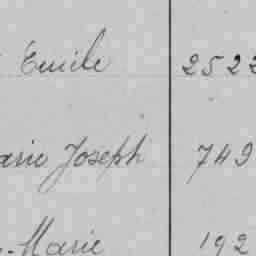 Emile 2522
arie Joseph 749
Marie 192